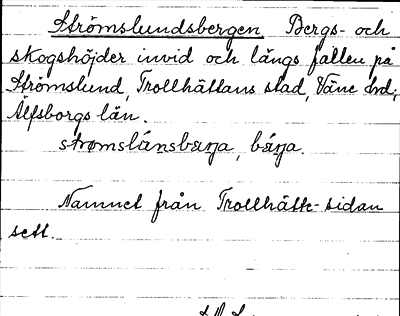 Strömslundsbergen. Bergs- och
skogshöjder invid och längs fallen på
Strömslund, Trollhättans stad, Väne hd,
Älfsborgs län.
Namnet från Trollhätte-sidan
sett.